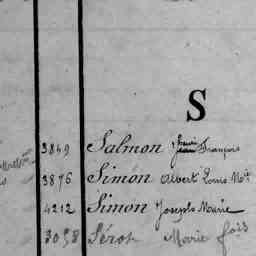 S
3849 Salmon Jean François
3876 Simon Albert Louis
4212 Simon Joseph Marie
3098 Sérot Marie